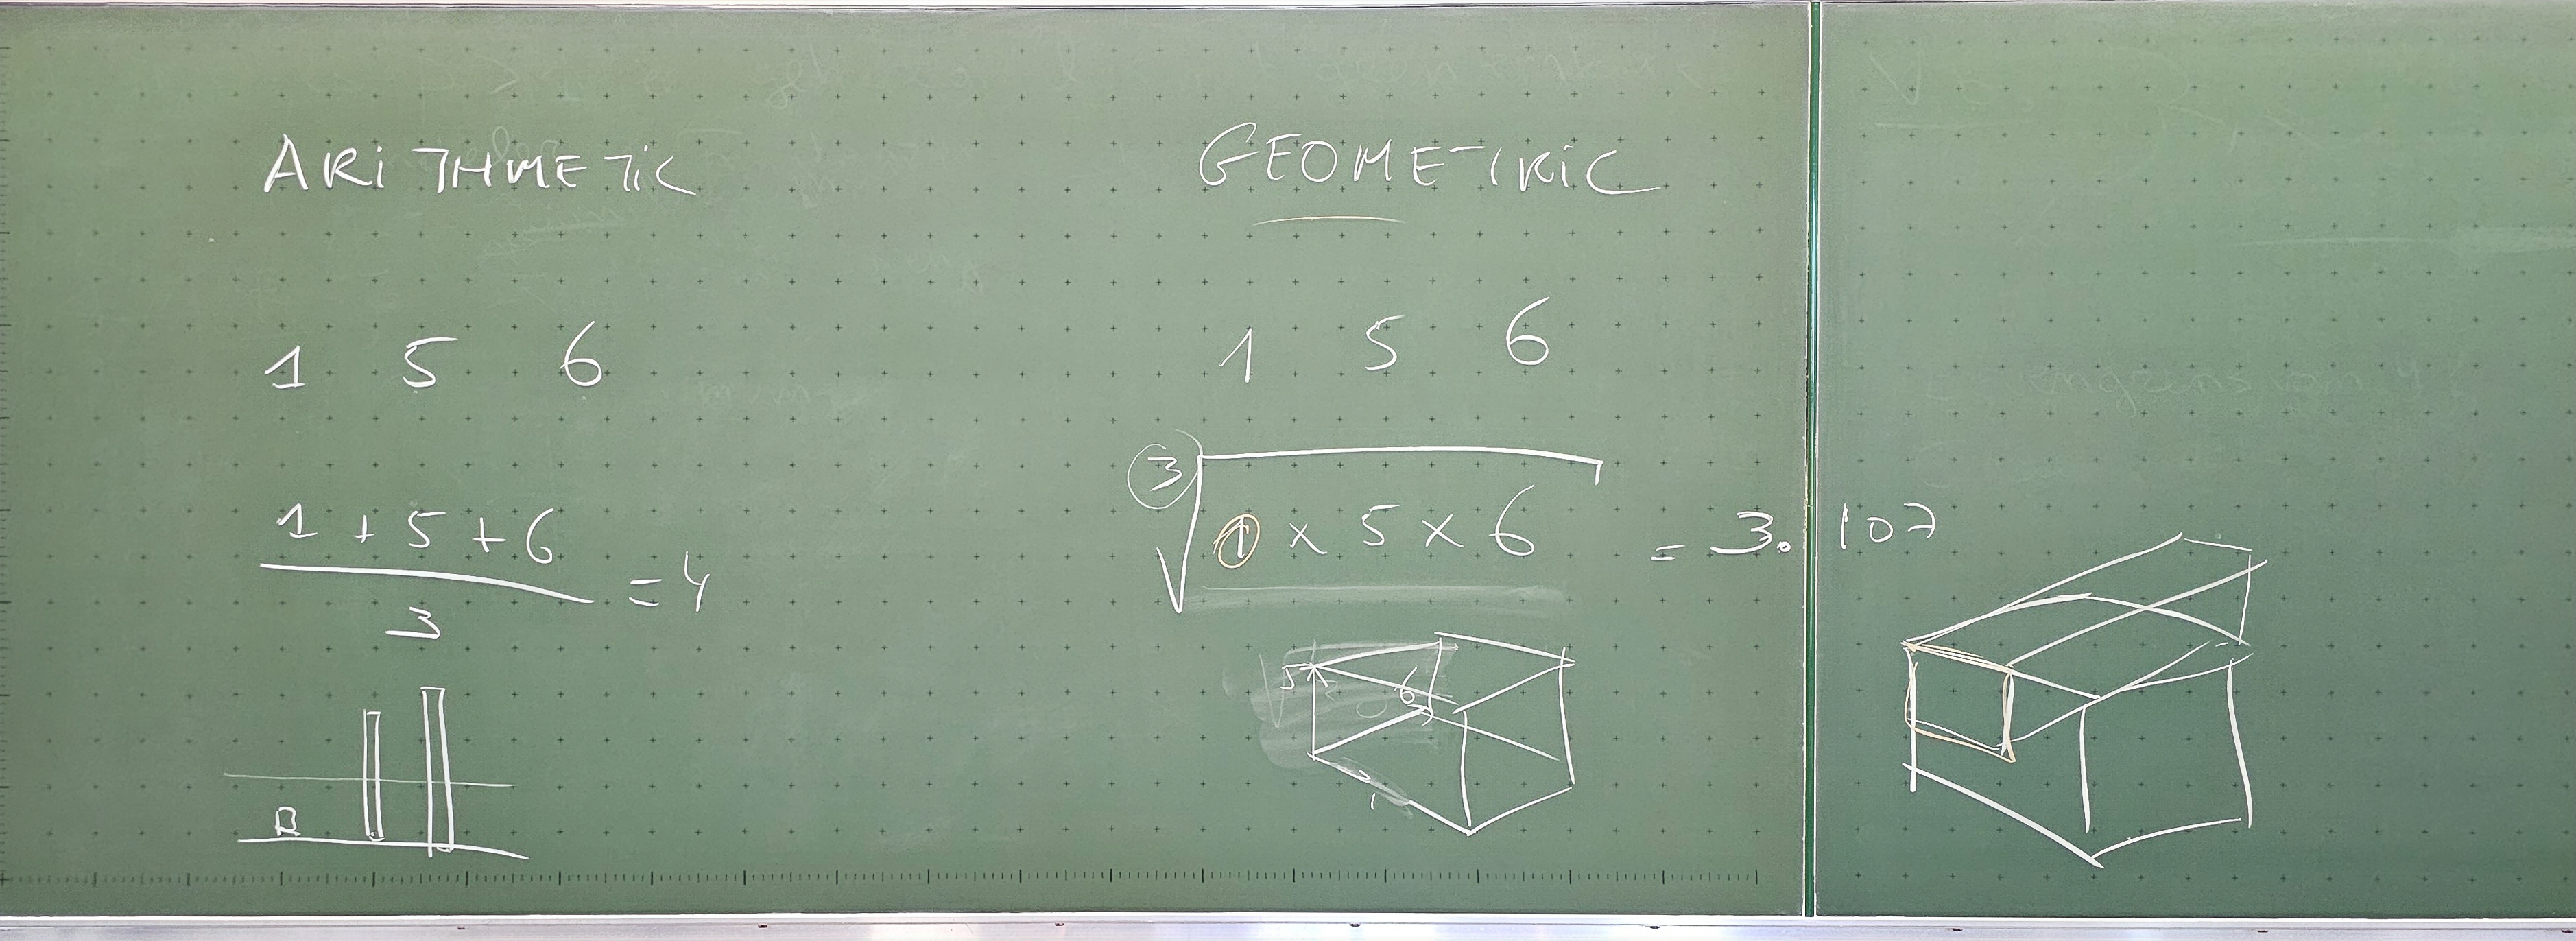 ARiTHMETiC
1 5 6
1 + 5 + 6
3
= 4
GEOMETRiC
1 5 6
3
√ 1 x 5 x 6 = 3.107
5
6
1